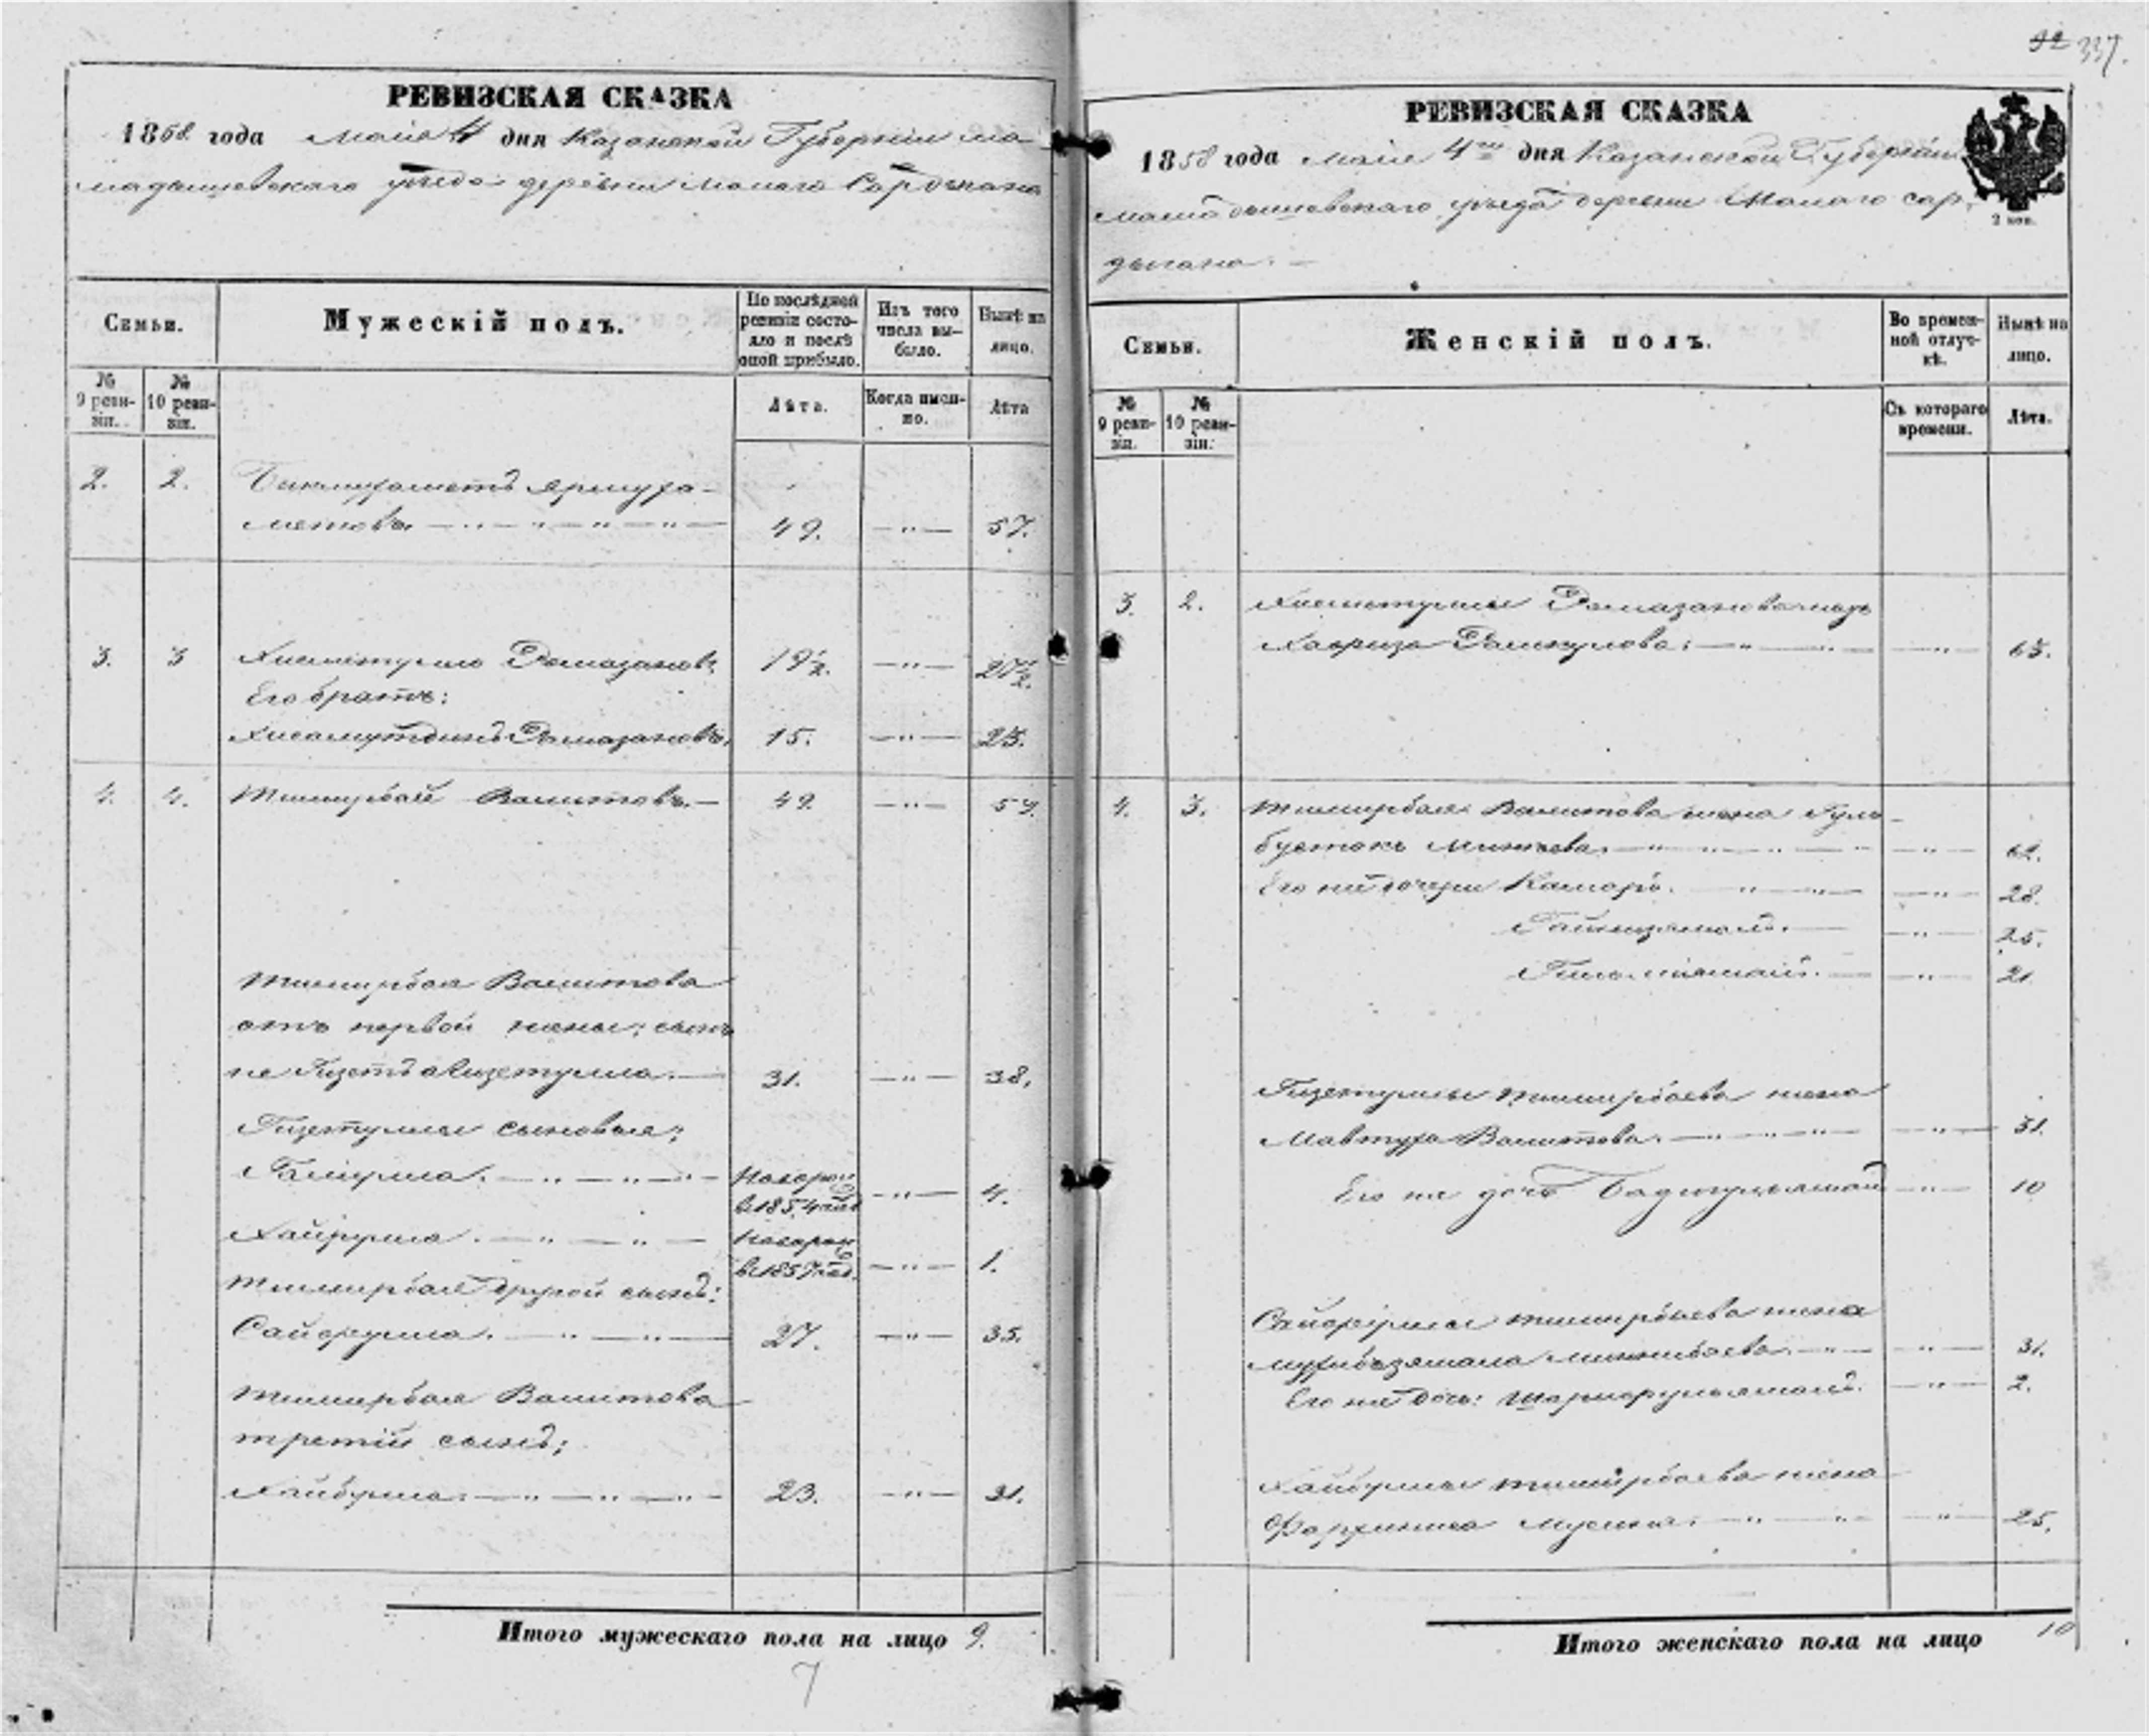 92 337.
РЕВИЗСКАЯ СКАЗКА
1858 года Маія 4 дня Казанской Губерніи Ма
мадышевскаго уѣзда деревни Малаго Сардыгана
Семьи.
Мужескій полъ.
По послѣдней ревизіи состояло и послѣ оной прибыло.
Изъ того числа выбыло.
Нынѣ на лицо.
№ 9 ревизіи.
№ 10 ревизіи.
Лѣта.
Когда именно.
Лѣта
2. 2. Бикмухаметъ Ярмуха-
метовъ 49. 57.
3. 3 Хисметулла Рамазановъ 19½. 27½.
Его братъ:
Хисамутдинъ Рамазановъ, 15. 23.
4. 4. Тимирбай Валитовъ. 49. 57.
Тимирбая Валитова
отъ первой жены: сынъ
31. 38.
Гизетуллы сыновья:
Галиулла. новорож. в 1854 год. 4.
Хайрулла. новорож. в 1857 год. 1.
Тимирбая другой сынъ:
Сайфулла. 27. 35.
Тимирбая Валитова
третій сынъ;
Хайбулла: 23. 31.
Итого мужескаго пола на лицо 9.
7
РЕВИЗСКАЯ СКАЗКА
1858 года Маія 4го дня Казанской Губерніи
Мамадышевскаго уѣзда деревни Малаго Сар-
дыгана.
2 коп.
Семьи.
Женскій полъ.
Во временной отлучкѣ.
Нынѣ на лицо.
№ 9 ревизіи.
№ 10 ревизіи.
Съ котораго времени.
Лѣта.
3. 2. Хисметуллы Рамазанова мать
Рамкулова: 63.
4. 3. Тимирбая Валитова жена Гуль-
бустанъ 62.
Его же дочери Камаръ. 28.
25.
21.
Гизетуллы Тимирбаева жена
Валитова. 31.
Его же дочь 10
Сайфуллы Тимирбаева жена
31.
Его же дочь: 2.
Хайбуллы Тимирбаева жена
Мусина: 25.
Итого женскаго пола на лицо 10